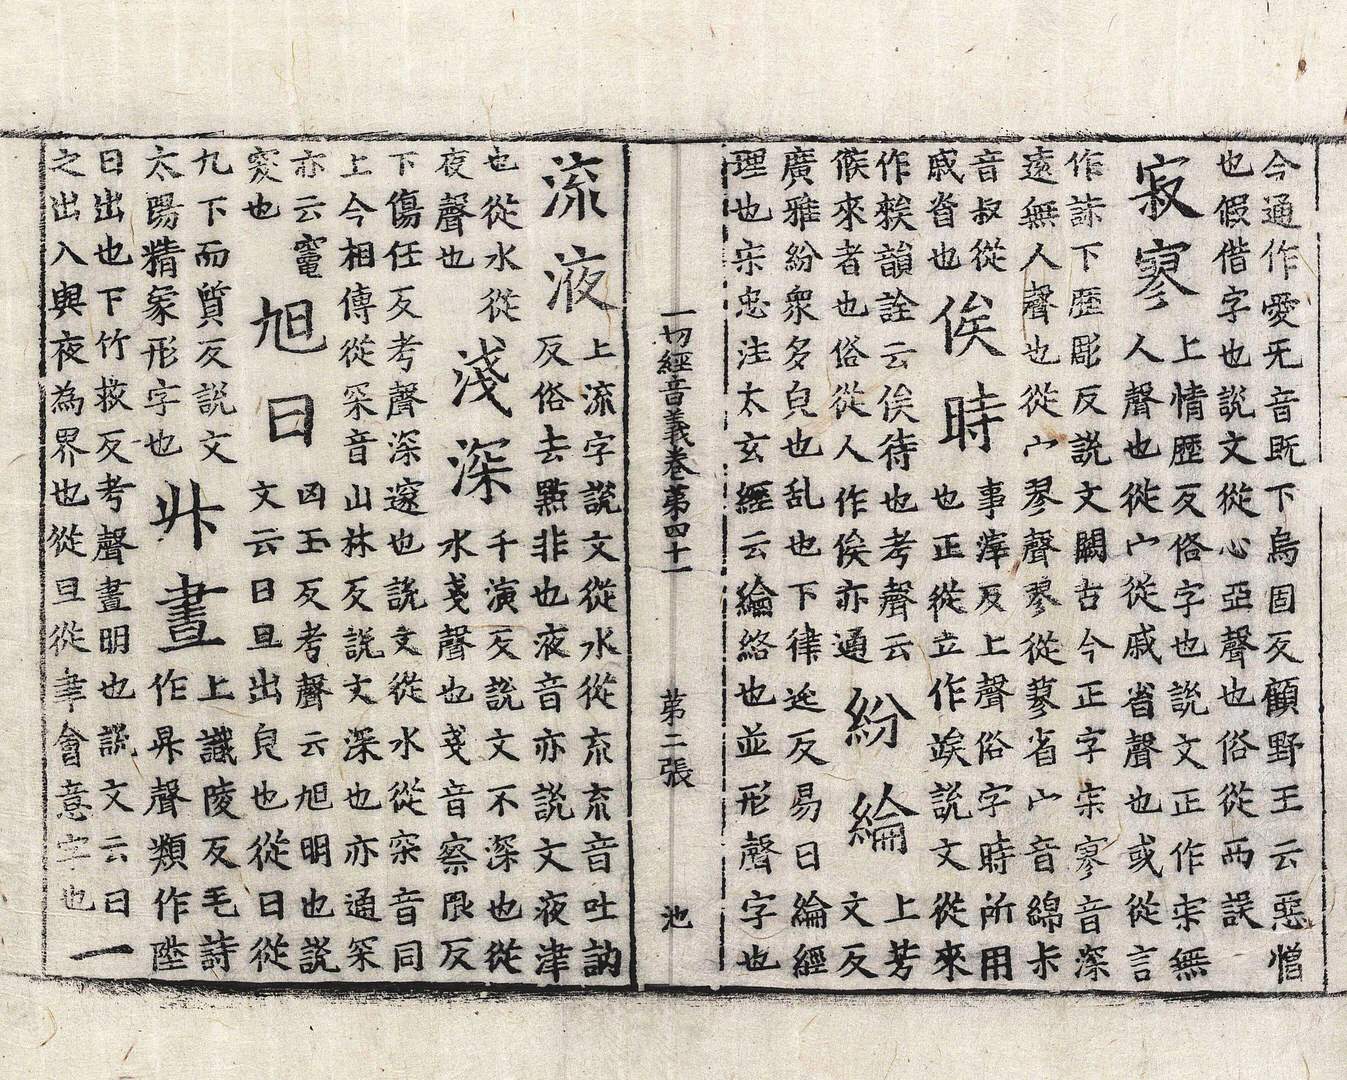 今通作愛旡音既下烏固反顧野王云惡憎
也假借字也說文從心亞聲也俗從西誤
寂寥
上情歷反俗字也說文正作宋無
人聲也從宀從戚省聲也或從言
作諔下歷彫反說文闕古今正字宋寥音深
遠無人聲也從宀翏聲翏從蓼省宀音綿卡
音叔從
戚省也
俟時
事滓反上聲俗字時所用
也正從立作竢說文從來
作韻詮云俟待也考聲云
候來者也俗從人作俟亦通
紛綸
上芳
文反
廣雅紛衆多皃也乱也下律迍反易曰綸經
理也宋忠注太玄經云綸絡也並形聲字也
一切經音義卷第四十一 第二張 池
流液
上流字說文從水從㐬㐬音吐訥
反俗去點非也液音亦說文液津
也從水從
夜聲也
淺深
千演反說文不深也從
水戔聲也戔音察限反
下傷任反考聲深邃也說文從水從罙音同
上今相傳從罙音山林反說文深也亦通罙
亦云竈
穾也
旭日
凶玉反考聲云旭明也說
文云日旦出皃也從日從
九下而質反說文
太陽精象形字也
昇晝
上識陵反毛詩
作昇聲類作陞
日出也下竹救反考聲晝明也說文云日
之出入與夜為界也從旦從聿會意字也
一